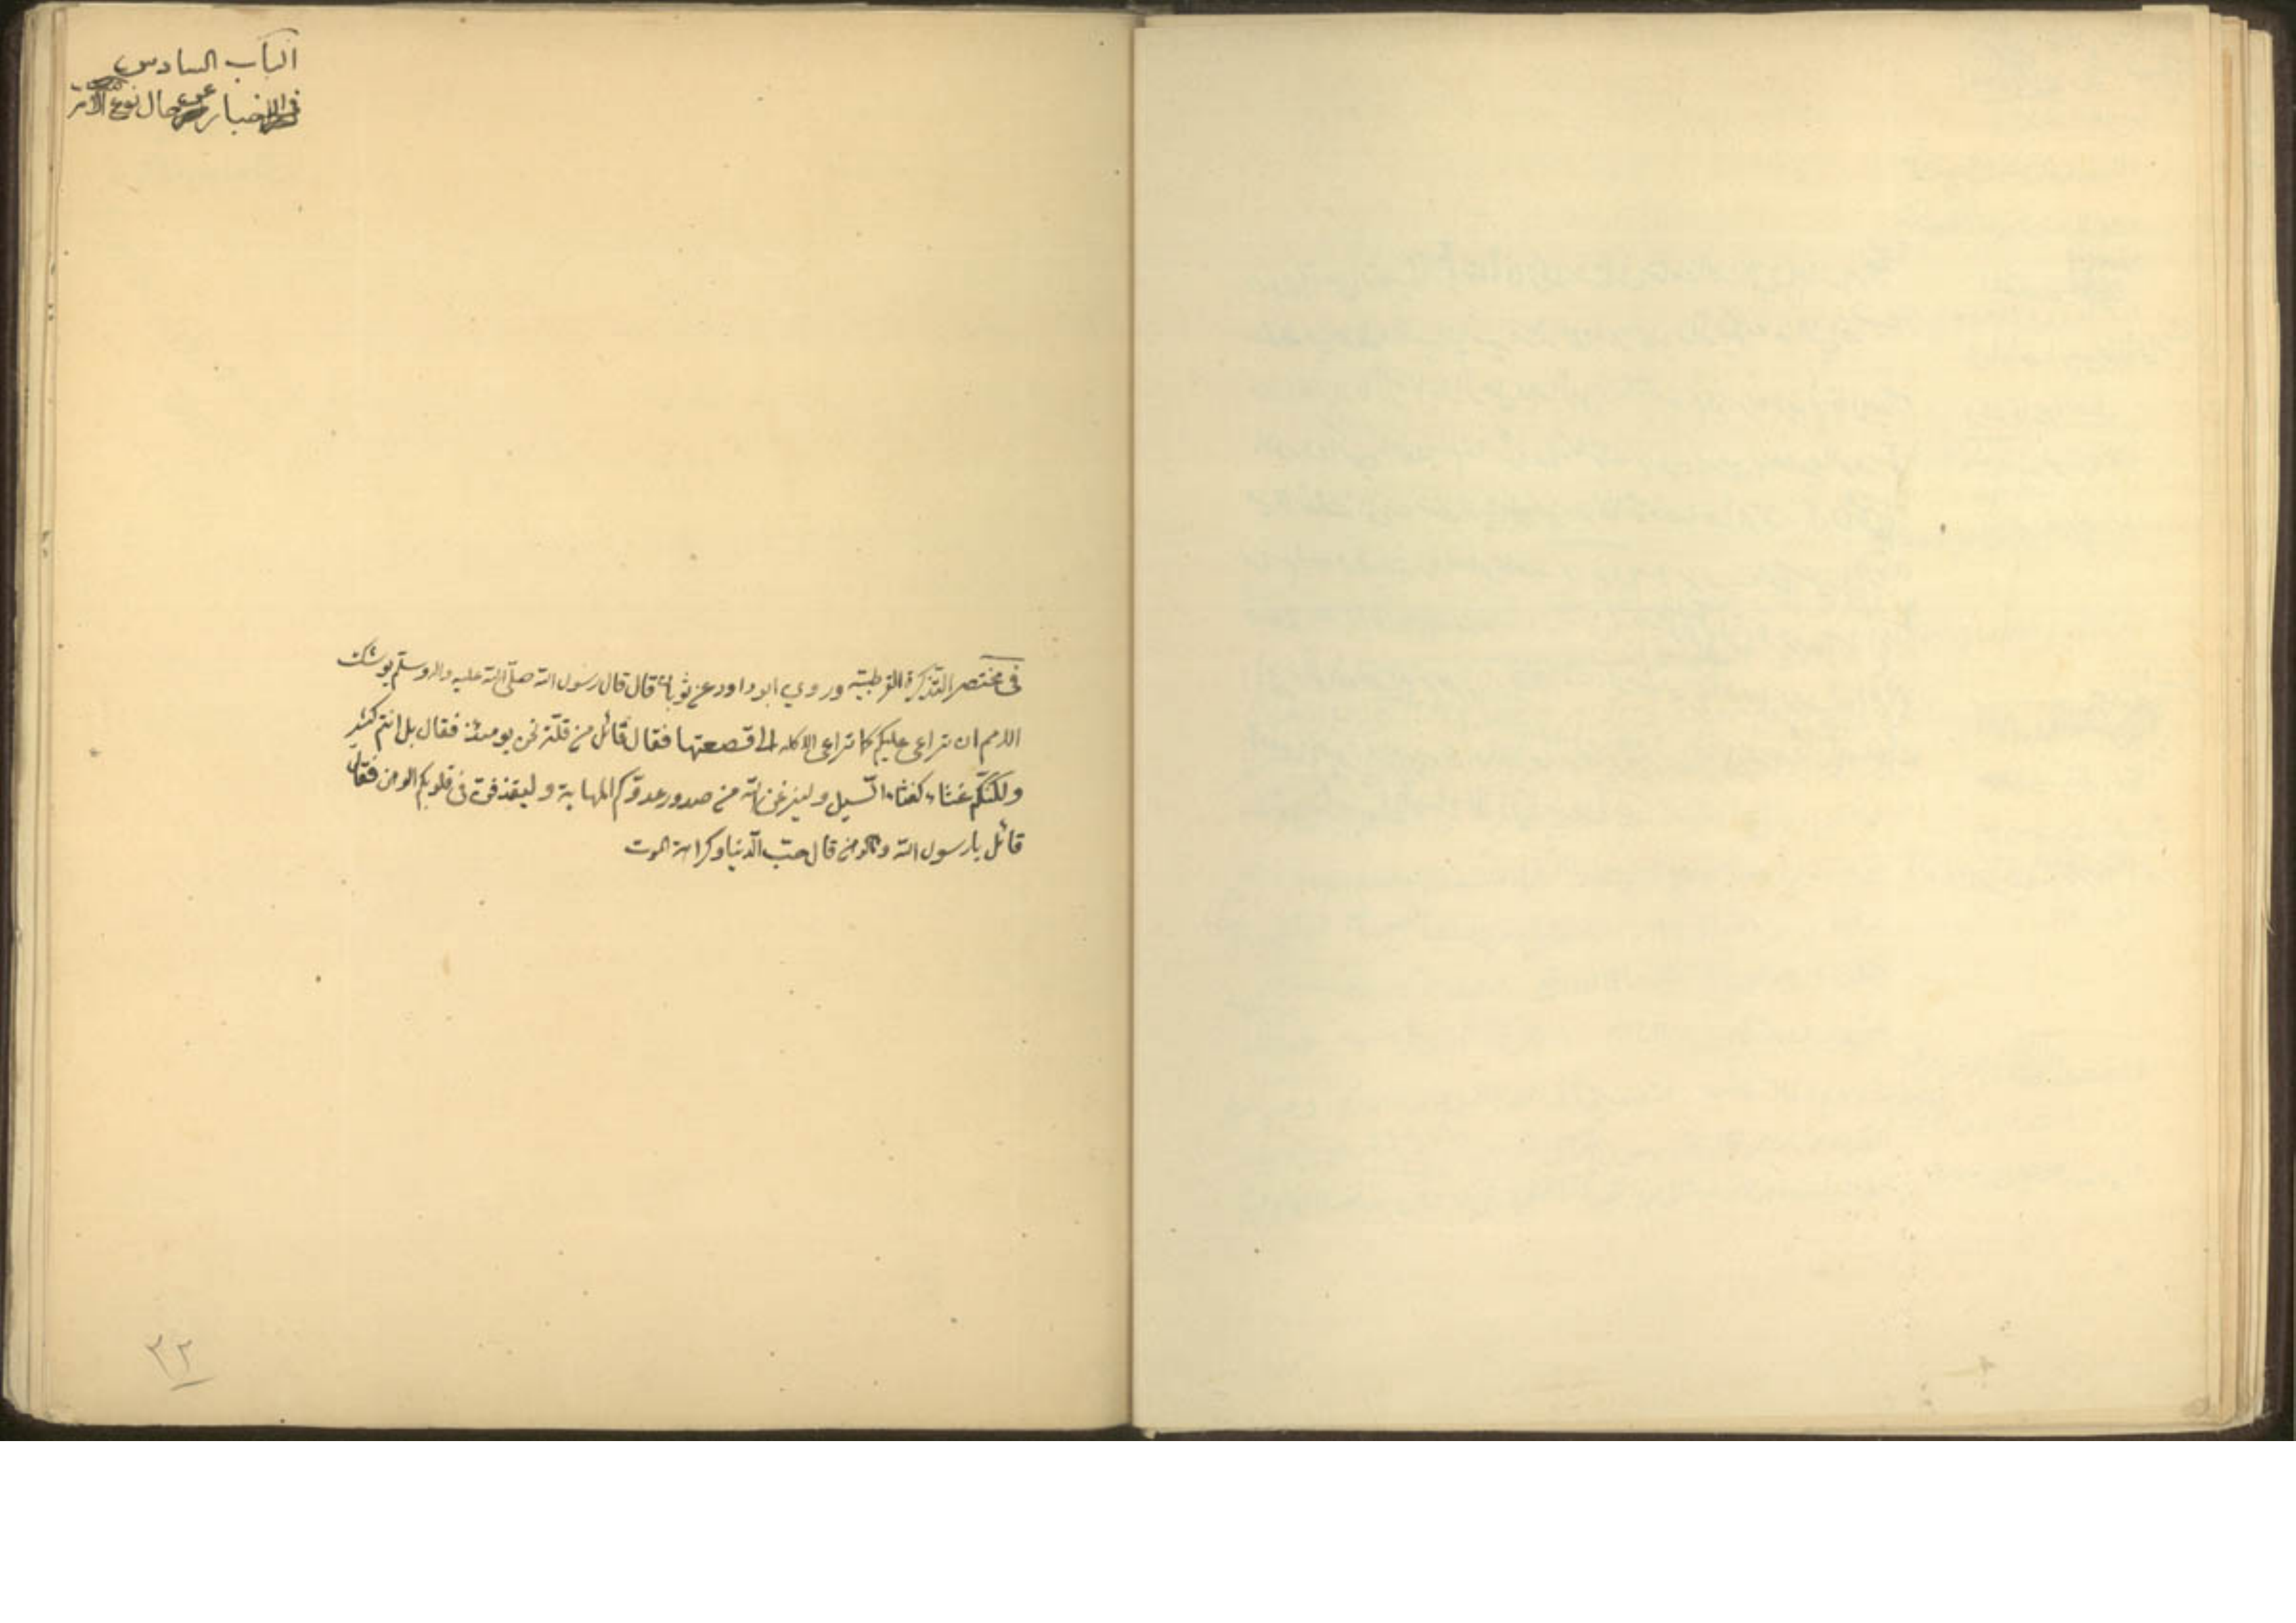 الباب السادس
في الاخبار عن حال نوع
في مختصر التذكرة القرطبية وروي ابو داود عن ثوبان قال قال رسول الله صلى الله عليه واله وسلم يوشك
الامم ان تداعى عليكم كما تداعى الاكلة الى قصعتها فقال قائل من قلة نحن يومئذ فقال بل انتم كثير
ولكنكم غثاء كغثاء السيل ولينزعن الله من صدور عدوكم المهابة وليقذفن في قلوبكم الوهن فقال
قائل يا رسول الله وما الوهن قال حب الدنيا وكراهة الموت
٣٢